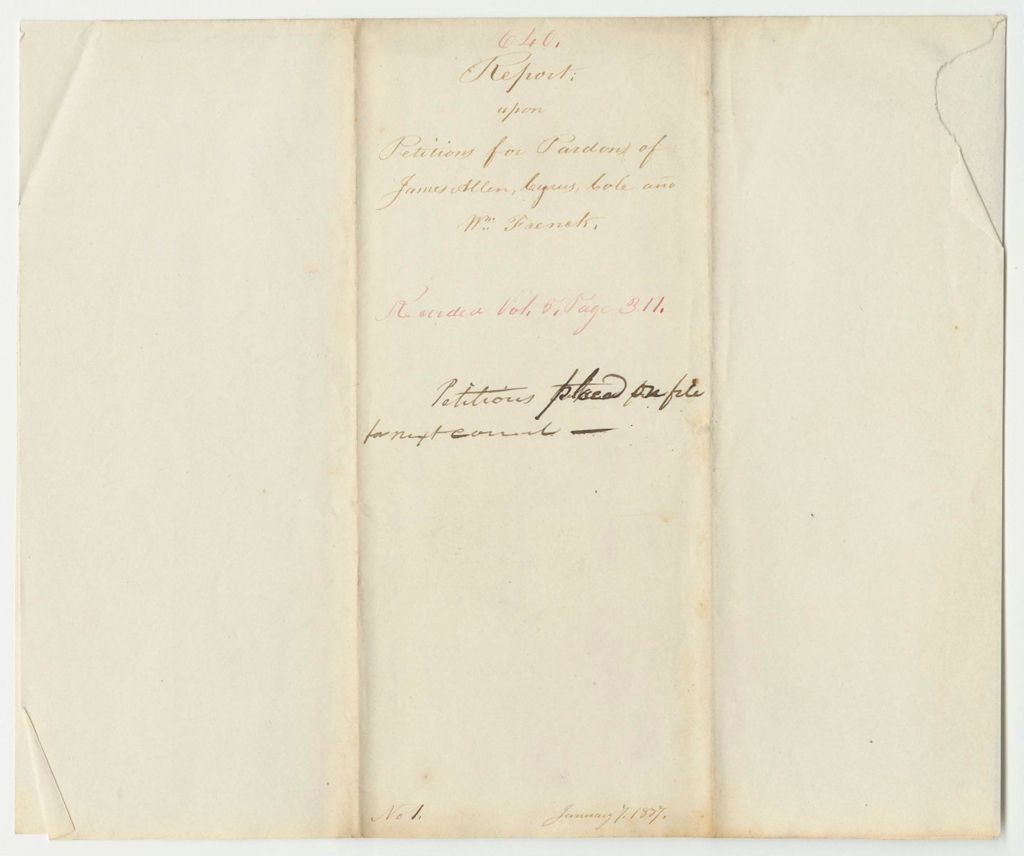 646.
Report:
upon
Petitions for Pardons of
James Allen, Cyrus, Cole and
Wm. French.
Recorded Vol. 5, Page 311.
Petitions placed on file
for next council —
No 1. January 7, 1837.